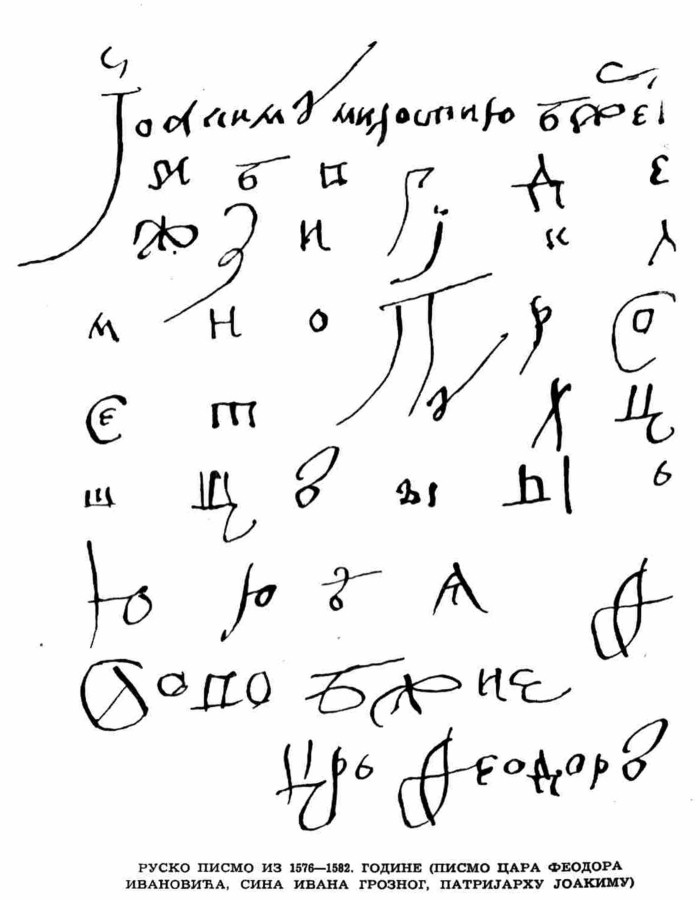 Јоакиму милостию бжеі
а б в г д е
ж з и ї к л
м н о П р о
є т у х ц
ш щ ъ ы ы ь
ю ю ѣ ѧ ѳ
црь ѳеодоръ
РУСКО ПИСМО ИЗ 1576—1582. ГОДИНЕ (ПИСМО ЦАРА ФЕОДОРА
ИВАНОВИЋА, СИНА ИВАНА ГРОЗНОГ, ПАТРИЈАРХУ ЈОАКИМУ)